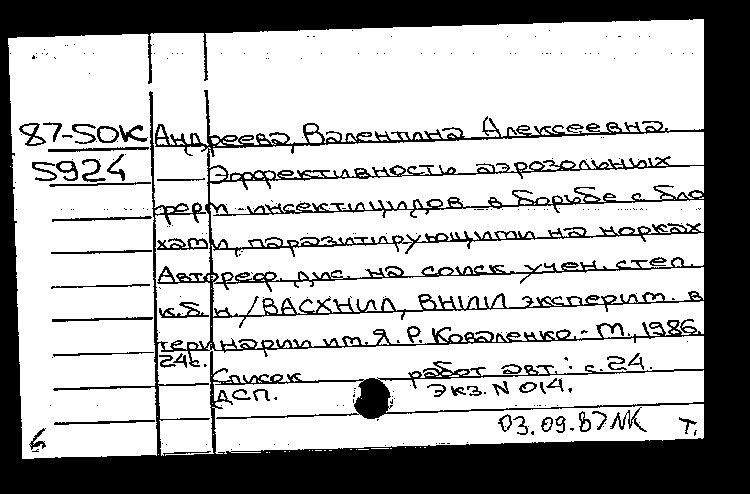 87-50К Андреева, Валентина Алексеевна.
5924 Эффективность аэрозольных
форм инсектицидов в борьбе с бло
хами, паразитирующими на норках
Автореф. дис. на соиск. учен. степ.
к.б.н. / ВАСХНИЛ, ВНИИ эксперим. ве
теринарии им. Я. Р. Коваленко. - М., 1986.
24с.
Список работ авт.: с. 24.
ДСП. Экз. N 014.
03.09.87 NK Т.
6